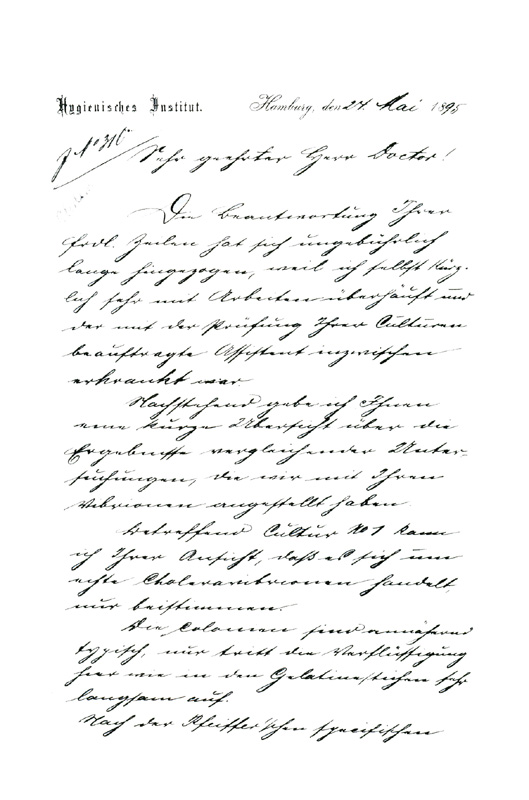 Hygienisches Institut. Hamburg, den 24. Mai 1895
J. No 316
Sehr geehrter Herr Doctor!
Die Beantwortung Ihrer
frdl. Zeilen hat sich ungebührlich
lange hingezogen, weil ich selbst kürz-
lich sehr mit Arbeiten überhäuft und
der mit der Prüfung Ihrer Culturen
beauftragte Assistent inzwischen
erkrankt war.
Nachstehend gebe ich Ihnen
eine kurze Übersicht über die
Ergebnisse vergleichender Unter-
suchungen, die wir mit Ihren
Vibrionen angestellt haben.
Betreffend Cultur No 1 kann
ich Ihrer Ansicht, daß es sich um
echte Choleravibrionen handelt
nur beistimmen.
Die Colonien sind annähernd
typisch, nur tritt die Verflüssigung
hier wie in den Gelatinestichen sehr
langsam auf.
Nach der Pfeiffer'schen specifischen